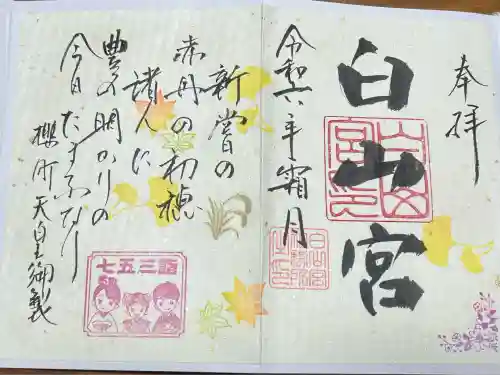 奉拝
白山宮
令和六年霜月
新嘗の
赤丹の初穂
諸人に
豊の明かりの
今日たまふなり
櫻町天皇御製
七五三詣